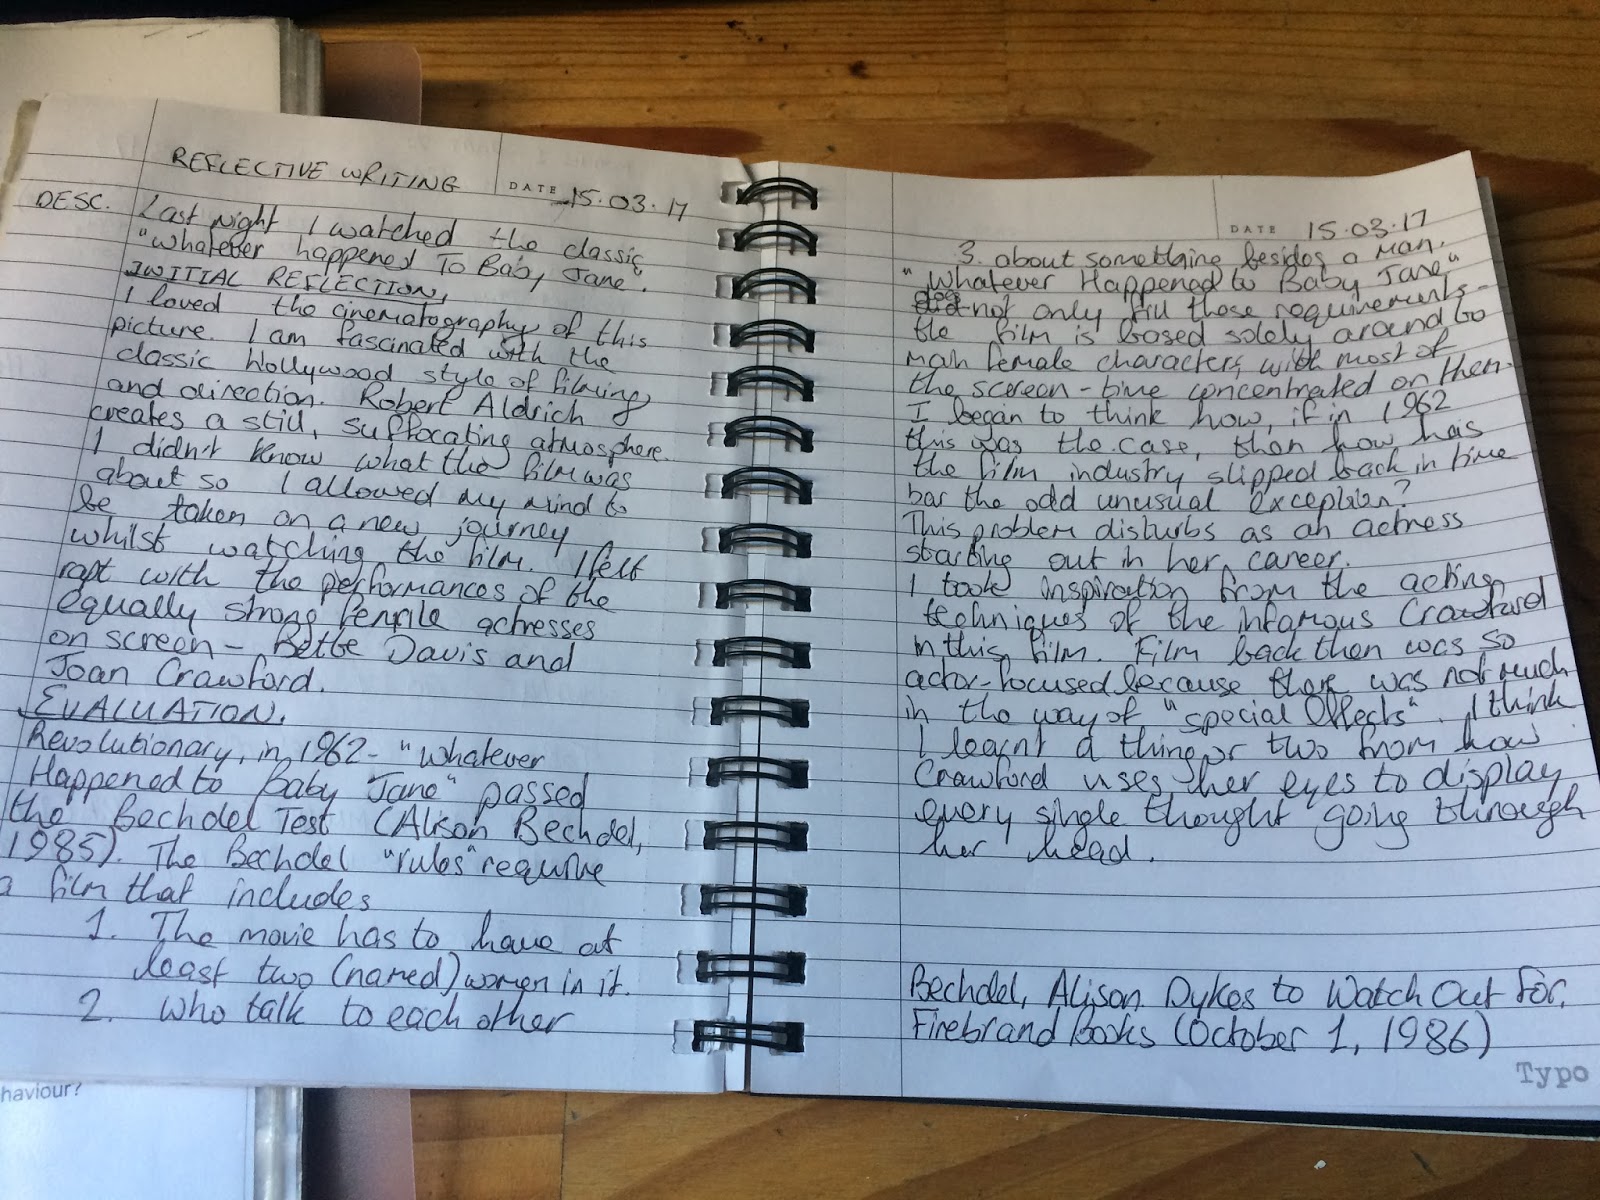 REFLECTIVE WRITING
DATE 15.03.17
DESC. Last night I watched the classic
"Whatever happened To Baby Jane".
INITIAL REFLECTION,
I loved the cinematography of this
picture. I am fascinated with the
classic Hollywood style of filming
and direction. Robert Aldrich
creates a still, suffocating atmosphere.
I didn't know what the film was
about so I allowed my mind to
be taken on a new journey
whilst watching the film. I felt
rapt with the performances of the
equally strong female actresses
on screen - Bette Davis and
Joan Crawford.
EVALUATION.
Revolutionary, in 1962 - "Whatever
Happened to Baby Jane" passed
the Bechdel Test (Alison Bechdel,
1985). The Bechdel "rules" require
a film that includes
1. The movie has to have at
least two (named) women in it.
2. Who talk to each other
DATE 15.03.17
3. about something besides a man.
"Whatever Happened to Baby Jane"
does not only fill those requirements -
the film is based solely around to
main female characters, with most of
the screen-time concentrated on them.
I began to think how, if in 1962
this was the case, then how has
the film industry slipped back in time
bar the odd unusual exception?
This problem disturbs as an actress
starting out in her career.
I took inspiration from the acting
techniques of the infamous Crawford
in this film. Film back then was so
actor-focused because there was not much
in the way of "special effects". I think
I learnt a thing or two from how
Crawford uses her eyes to display
every single thought going through
her head.
Bechdel, Alison. Dykes to Watch Out For.
Firebrand Books (October 1, 1986)
Typo
haviour?